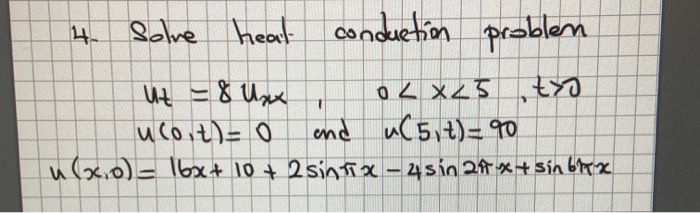 4- Solve heat conduction problem
ut = 8 uxx , 0 < x < 5 , t>0
u(0,t) = 0 and u(5,t) = 90
u(x,0) = 16x + 10 + 2 sin πx - 4 sin 2πx + sin 6πx